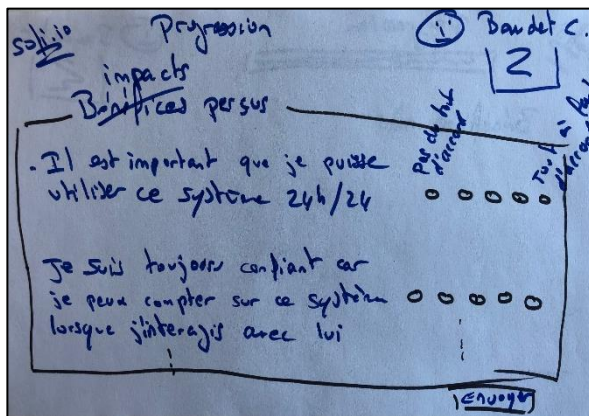 Progression
Baudet C.
2
impacts
Bénéfices persus
pas du tout d'accord
Tout à fait d'accord
. Il est important que je puisse
utiliser ce système 24h/24
Je suis toujours confiant car
je peux compter sur ce système
lorsque j'interagis avec lui
Envoyer